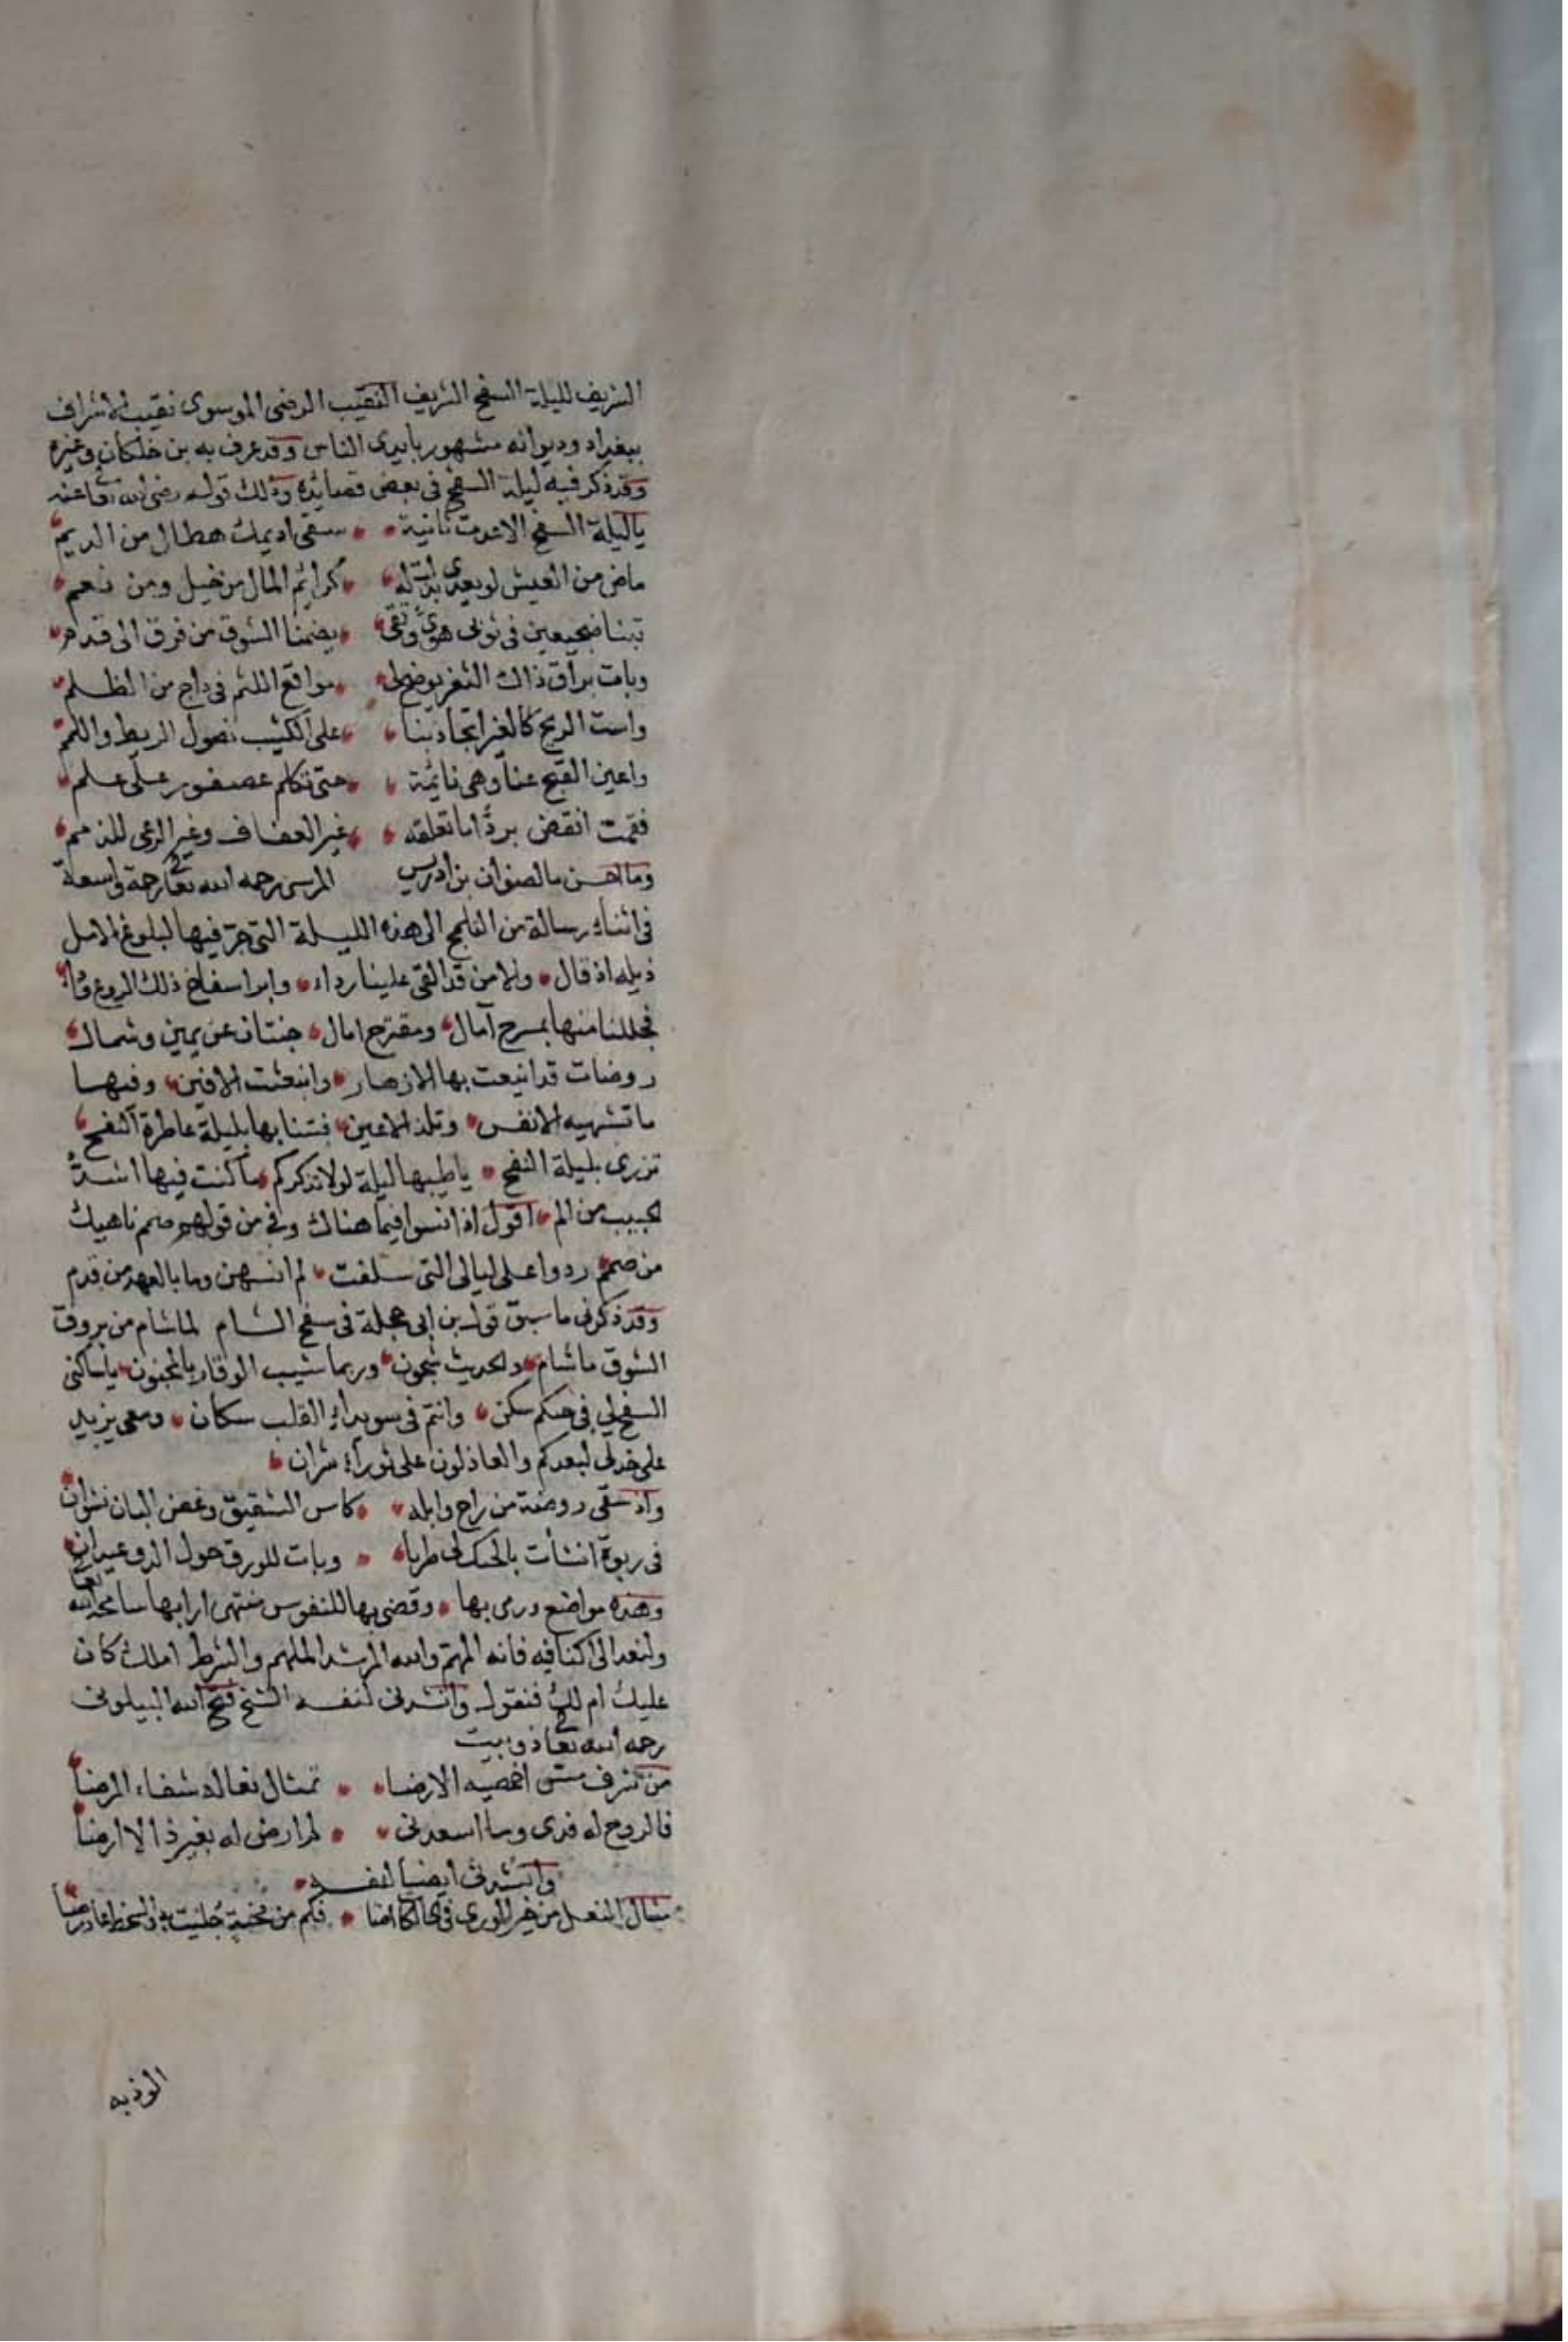 الشريف لليلة السفح الشريف النقيب الرضى الموسوى نقيب الاشراف
ببغداد وديوانه مشهور بايدى الناس وقد عرف به بن خلكان وغيره
وقد ذكر فيه ليلة السفح فى بعض قصائده وذلك قوله رضى الله تعا عنه
ياليلة السفح الاعدت ثانية سقى اديمك هطال من الديم
ماض من العيش لو يفدى بذلت له كرائم المال من خيل ومن نعم
بتنا ضجيعين فى ثوبى هوىً وتقى يضمنا الشوق من فرق الى قدم
وبات برّاق ذاك الثغر يوضح لى مواقع اللثم فى داج من الظلم
وامست الريح كالغيرا تجاذبنا على الكثيب فضول الريط واللمم
واعين الصبح عنا وهى نائمة حتى تكلم عصفور على علم
فقمت انفض بردًا ما تعلقه غير العفاف وغير الرعى للذمم
وما احسن ما لصفوان بن ادريس المرسى رحمه الله تعا رحمة واسعة
فى اثناء رسالة من التلميح الى هذه الليلة التى جرّ فيها لبلوغ الامل
ذيله اذ قال ولا من قد القى علينا رداء وابرا سفاح ذلك الروع
فحللنا منها بمسرح آمال ومقترح امال جنتان عن يمين وشمال
روضات قد اينعت بها الازهار وانبعثت وفيها
ما تشتهيه الانفس وتلذ الاعين فبتنا بها بليلة عاطرة النفح
تزرى بليلة السفح يا طيبها ليلة لولا تذكركم ما كنت فيها اشدُّ
لحبيب من الم اقول اذا نسوا فيما هناك وفى من قولهم صمم ناهيك
من صمم ردوا على ليالى التى سلفت لم انسهن وما بالعهد من قدم
وقد ذكرنى ما سبق قول بن ابى حجلة فى سفح الشام لما شام من بروق
الشوق ما شام والحديث شجون وربما شيب الوقار بالمجنون يا ساكنى
السفح لى فى حبكم سكن وانتم فى سويداء القلب سكان ودمعى يزيد
على خدى لبعدكم والعاذلون على ثوراء شران
واذ سقى روضة من راح وابله كاس الشقيق وغصن البان نشوان
فى ربوة انشأت بالجنك لى طربا وبات للورق حول الدوح عيدان
وهذه مواضع ورمى بها وقضى بها للنفوس منتهى ارابها سامحه الله تعا
ولنعد الى ما كنا فيه فانه المهم والله المرشد الملهم والشرط املك كان
عليك ام لك فنقول وانشدنى لنفسه الشيخ فتح الله البيلونى
رحمه الله تعا ذو بيت
من شرف مسّ اخمصيه الارضا تمثال نعاله شفاء المرضا
فالروح له فدى وما اسعدنى لم ارض له بغير ذا الا ارضا
وانشدنى ايضا لنفسه
مثال النعل من خير الورى فكم من محنية جُليت
الوذ به